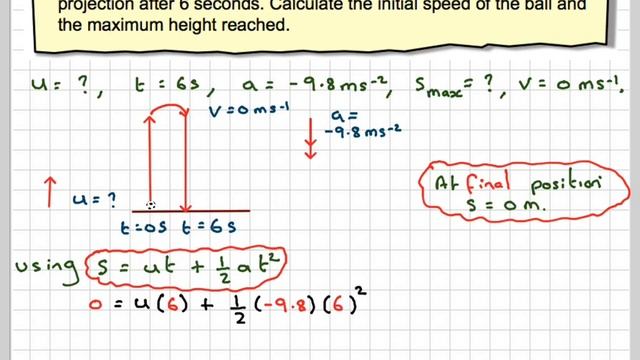 projection after 6 seconds. Calculate the initial speed of the ball and
the maximum height reached.
u = ?, t = 6s, a = -9.8ms⁻², Smax = ?, v = 0 ms⁻¹.
v = 0 ms⁻¹
a =
-9.8 ms⁻²
At final position
s = 0 m.
u = ?
t=0s t = 6s
using s = ut + ½ at²
0 = u(6) + ½ (-9.8)(6)²